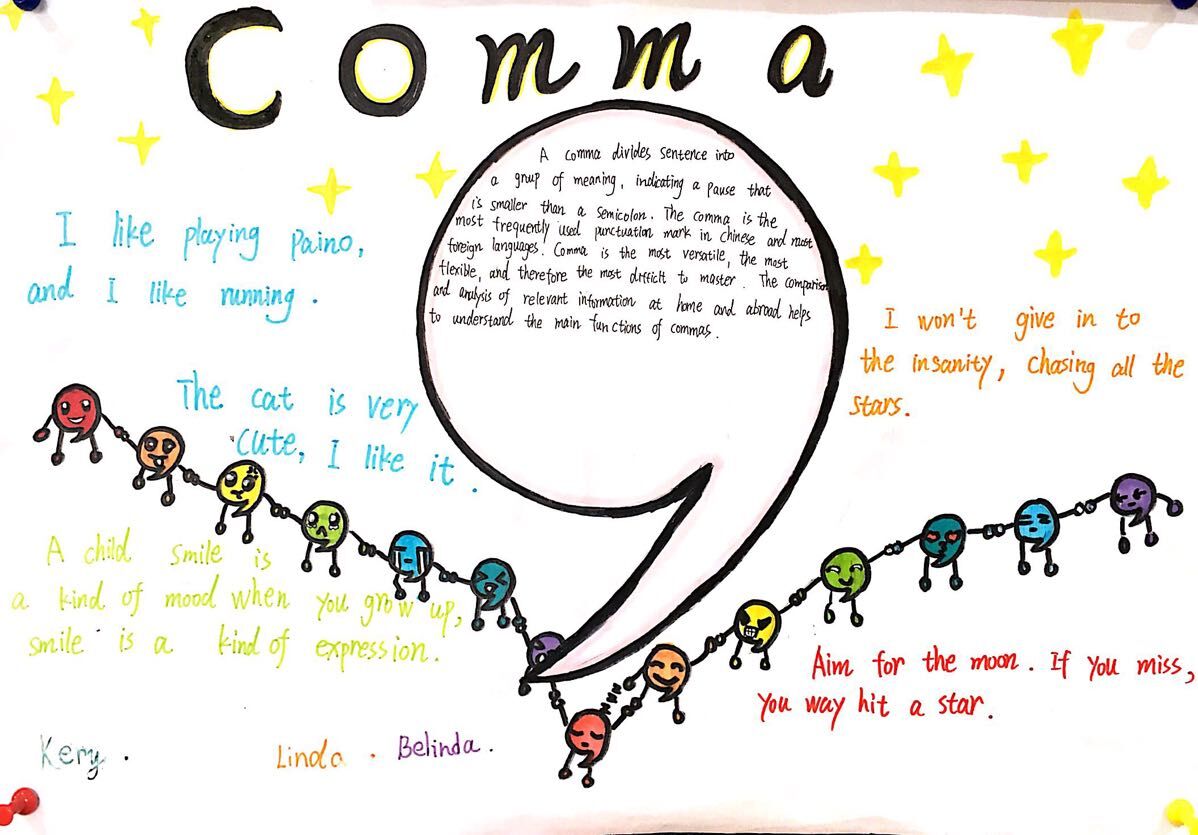 Comma
A comma divides sentence into
a grup of meaning, indicating a pause that
is smaller than a semicolon. The comma is the
most frequently used punctuation mark in chinese and most
foreign languages. Comma is the most versatile, the most
flexible, and therefore the most difficult to master. The comparison
and analysis of relevant information at home and abroad helps
to understand the main functions of commas.
I like playing paino,
and I like running.
The cat is very
cute, I like it.
A child smile is
a kind of mood when you grow up,
smile is a kind of expression.
I won't give in to
the insanity, chasing all the
stars.
Aim for the moon. If you miss,
you way hit a star.
Linda. Belinda.